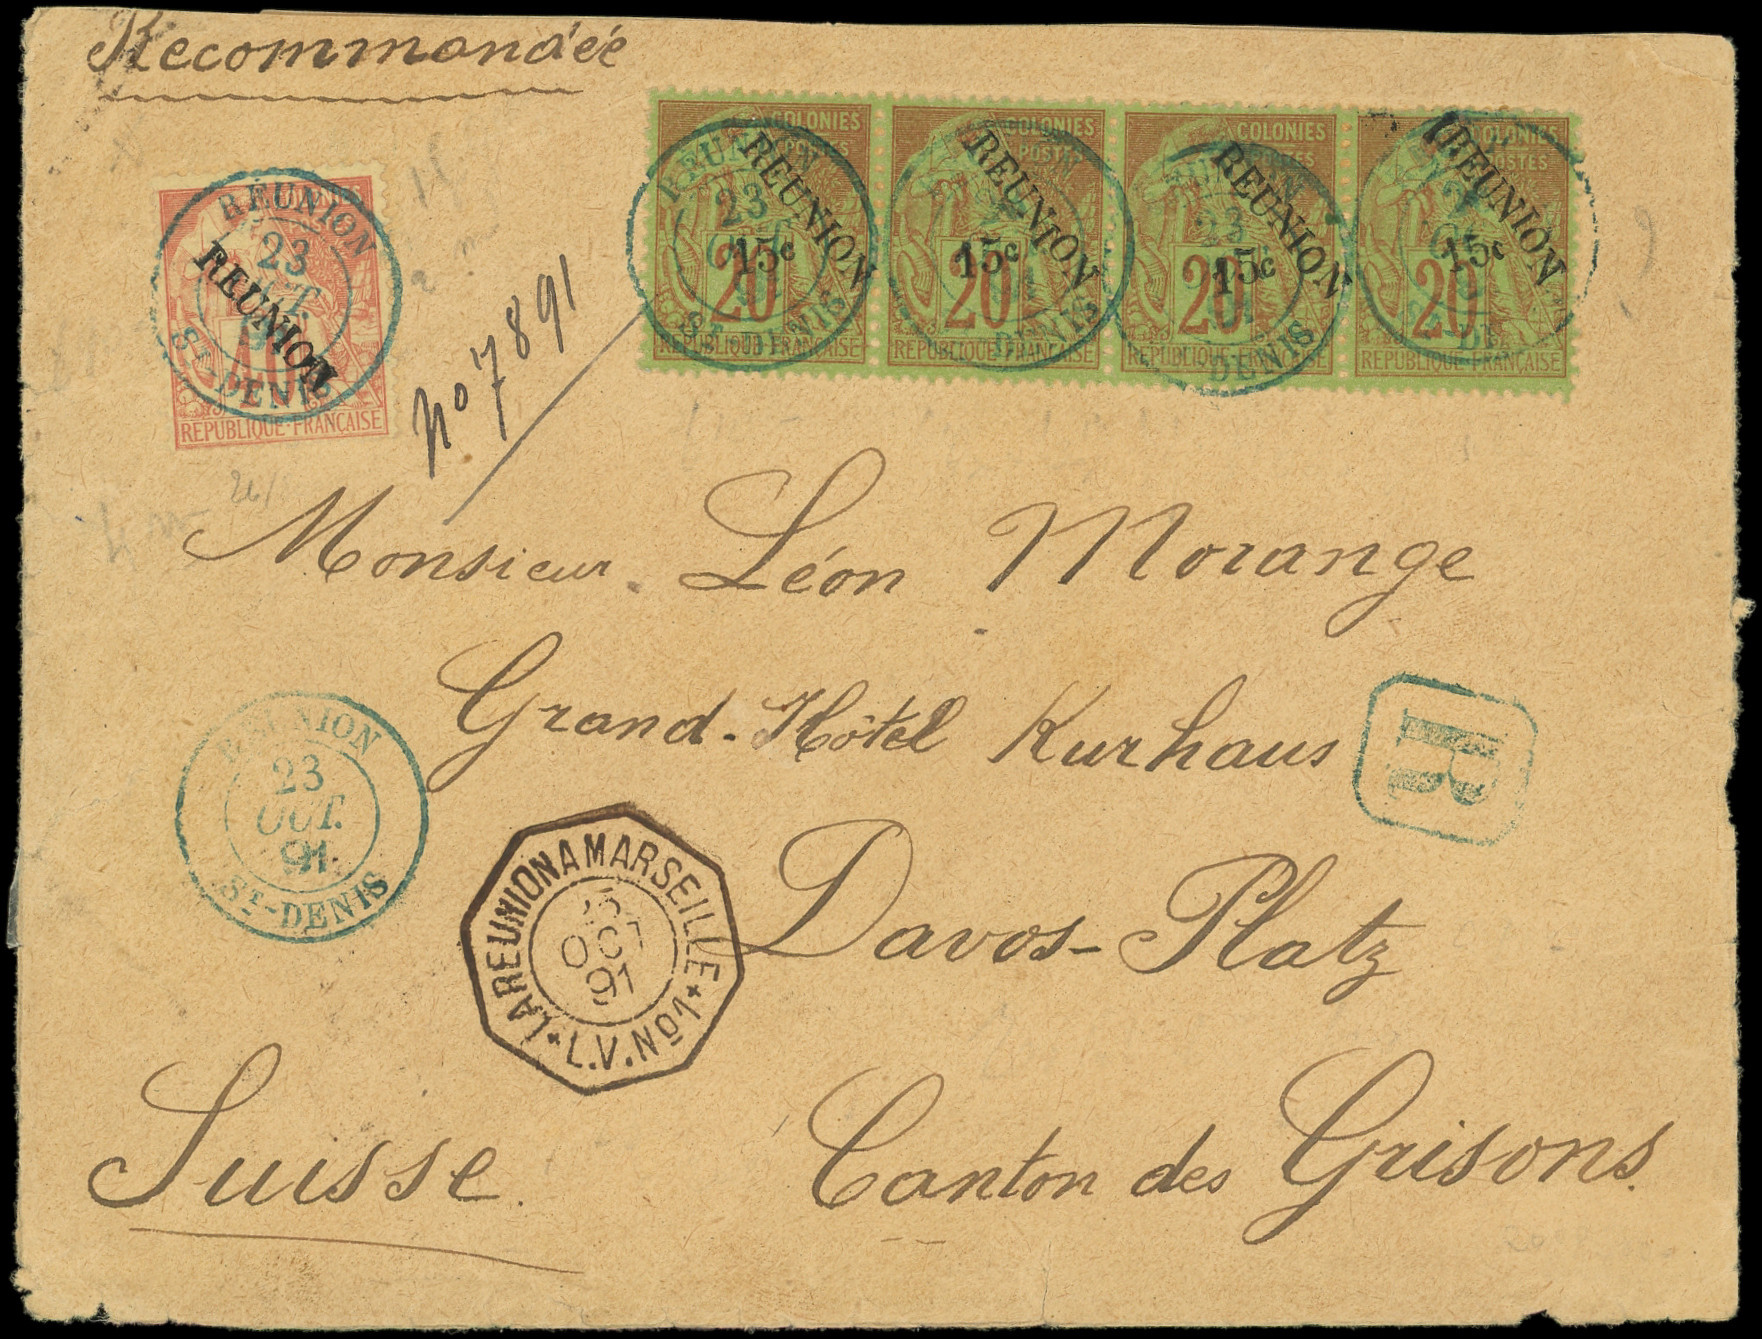 Recommandée
COLONIES
POSTES
REUNION
15c
20
REPUBLIQUE FRANÇAISE
COLONIES
POSTES
REUNION
15c
20
REPUBLIQUE FRANÇAISE
COLONIES
POSTES
REUNION
15c
20
REPUBLIQUE FRANÇAISE
COLONIES
POSTES
REUNION
15c
20
REPUBLIQUE FRANÇAISE
RÉUNION
23
OCT.
91
ST-DENIS
REUNION
40
REPUBLIQUE FRANÇAISE
No 7891
Monsieur Léon Morange
Grand-Hôtel Kurhaus
R
RÉUNION
23
OCT.
91
ST-DENIS
LA REUNION A MARSEILLE
OCT
91
L.V. No 1
Davos-Platz
Suisse
Canton des Grisons.